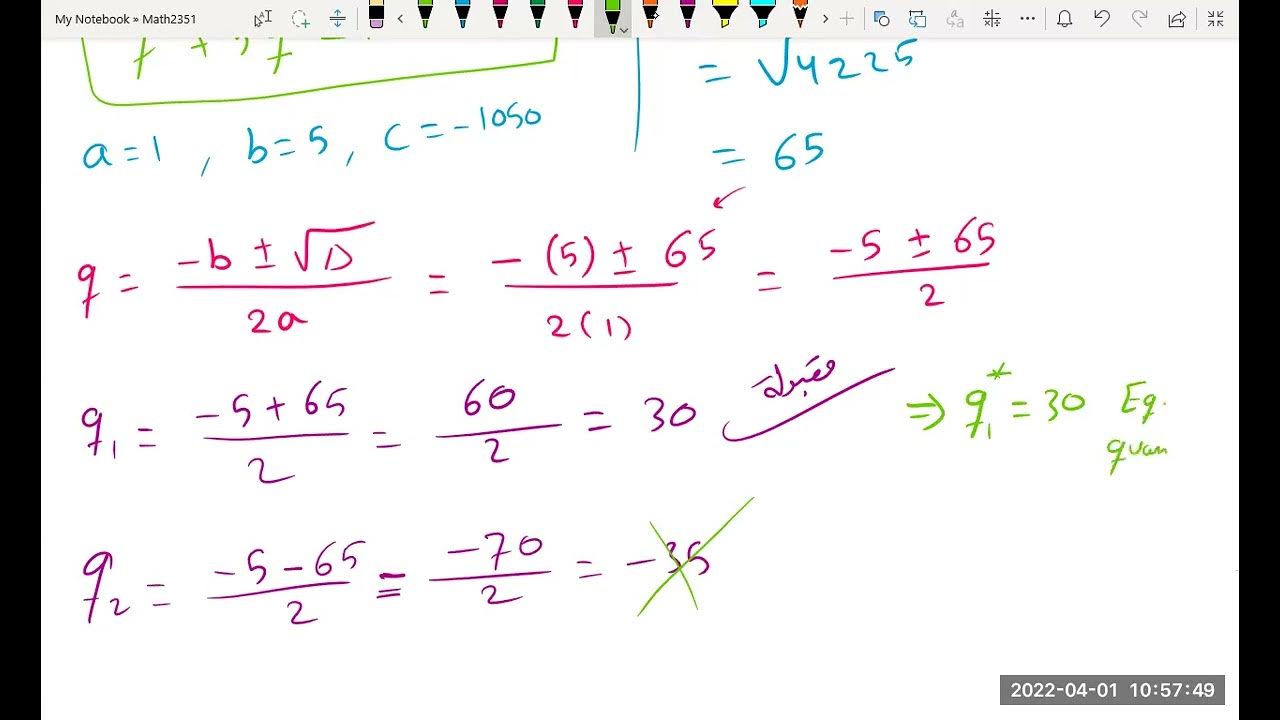 My Notebook » Math2351
= √4225
a = 1 , b = 5 , c = -1050
= 65
q = (-b ± √D)/(2a) = (-(5) ± 65)/(2(1)) = (-5 ± 65)/2
q₁ = (-5 + 65)/2 = 60/2 = 30 مقبولة ⇒ q₁* = 30 Eq.
quan
q₂ = (-5 - 65)/2 = -70/2 = -35
2022-04-01 10:57:49